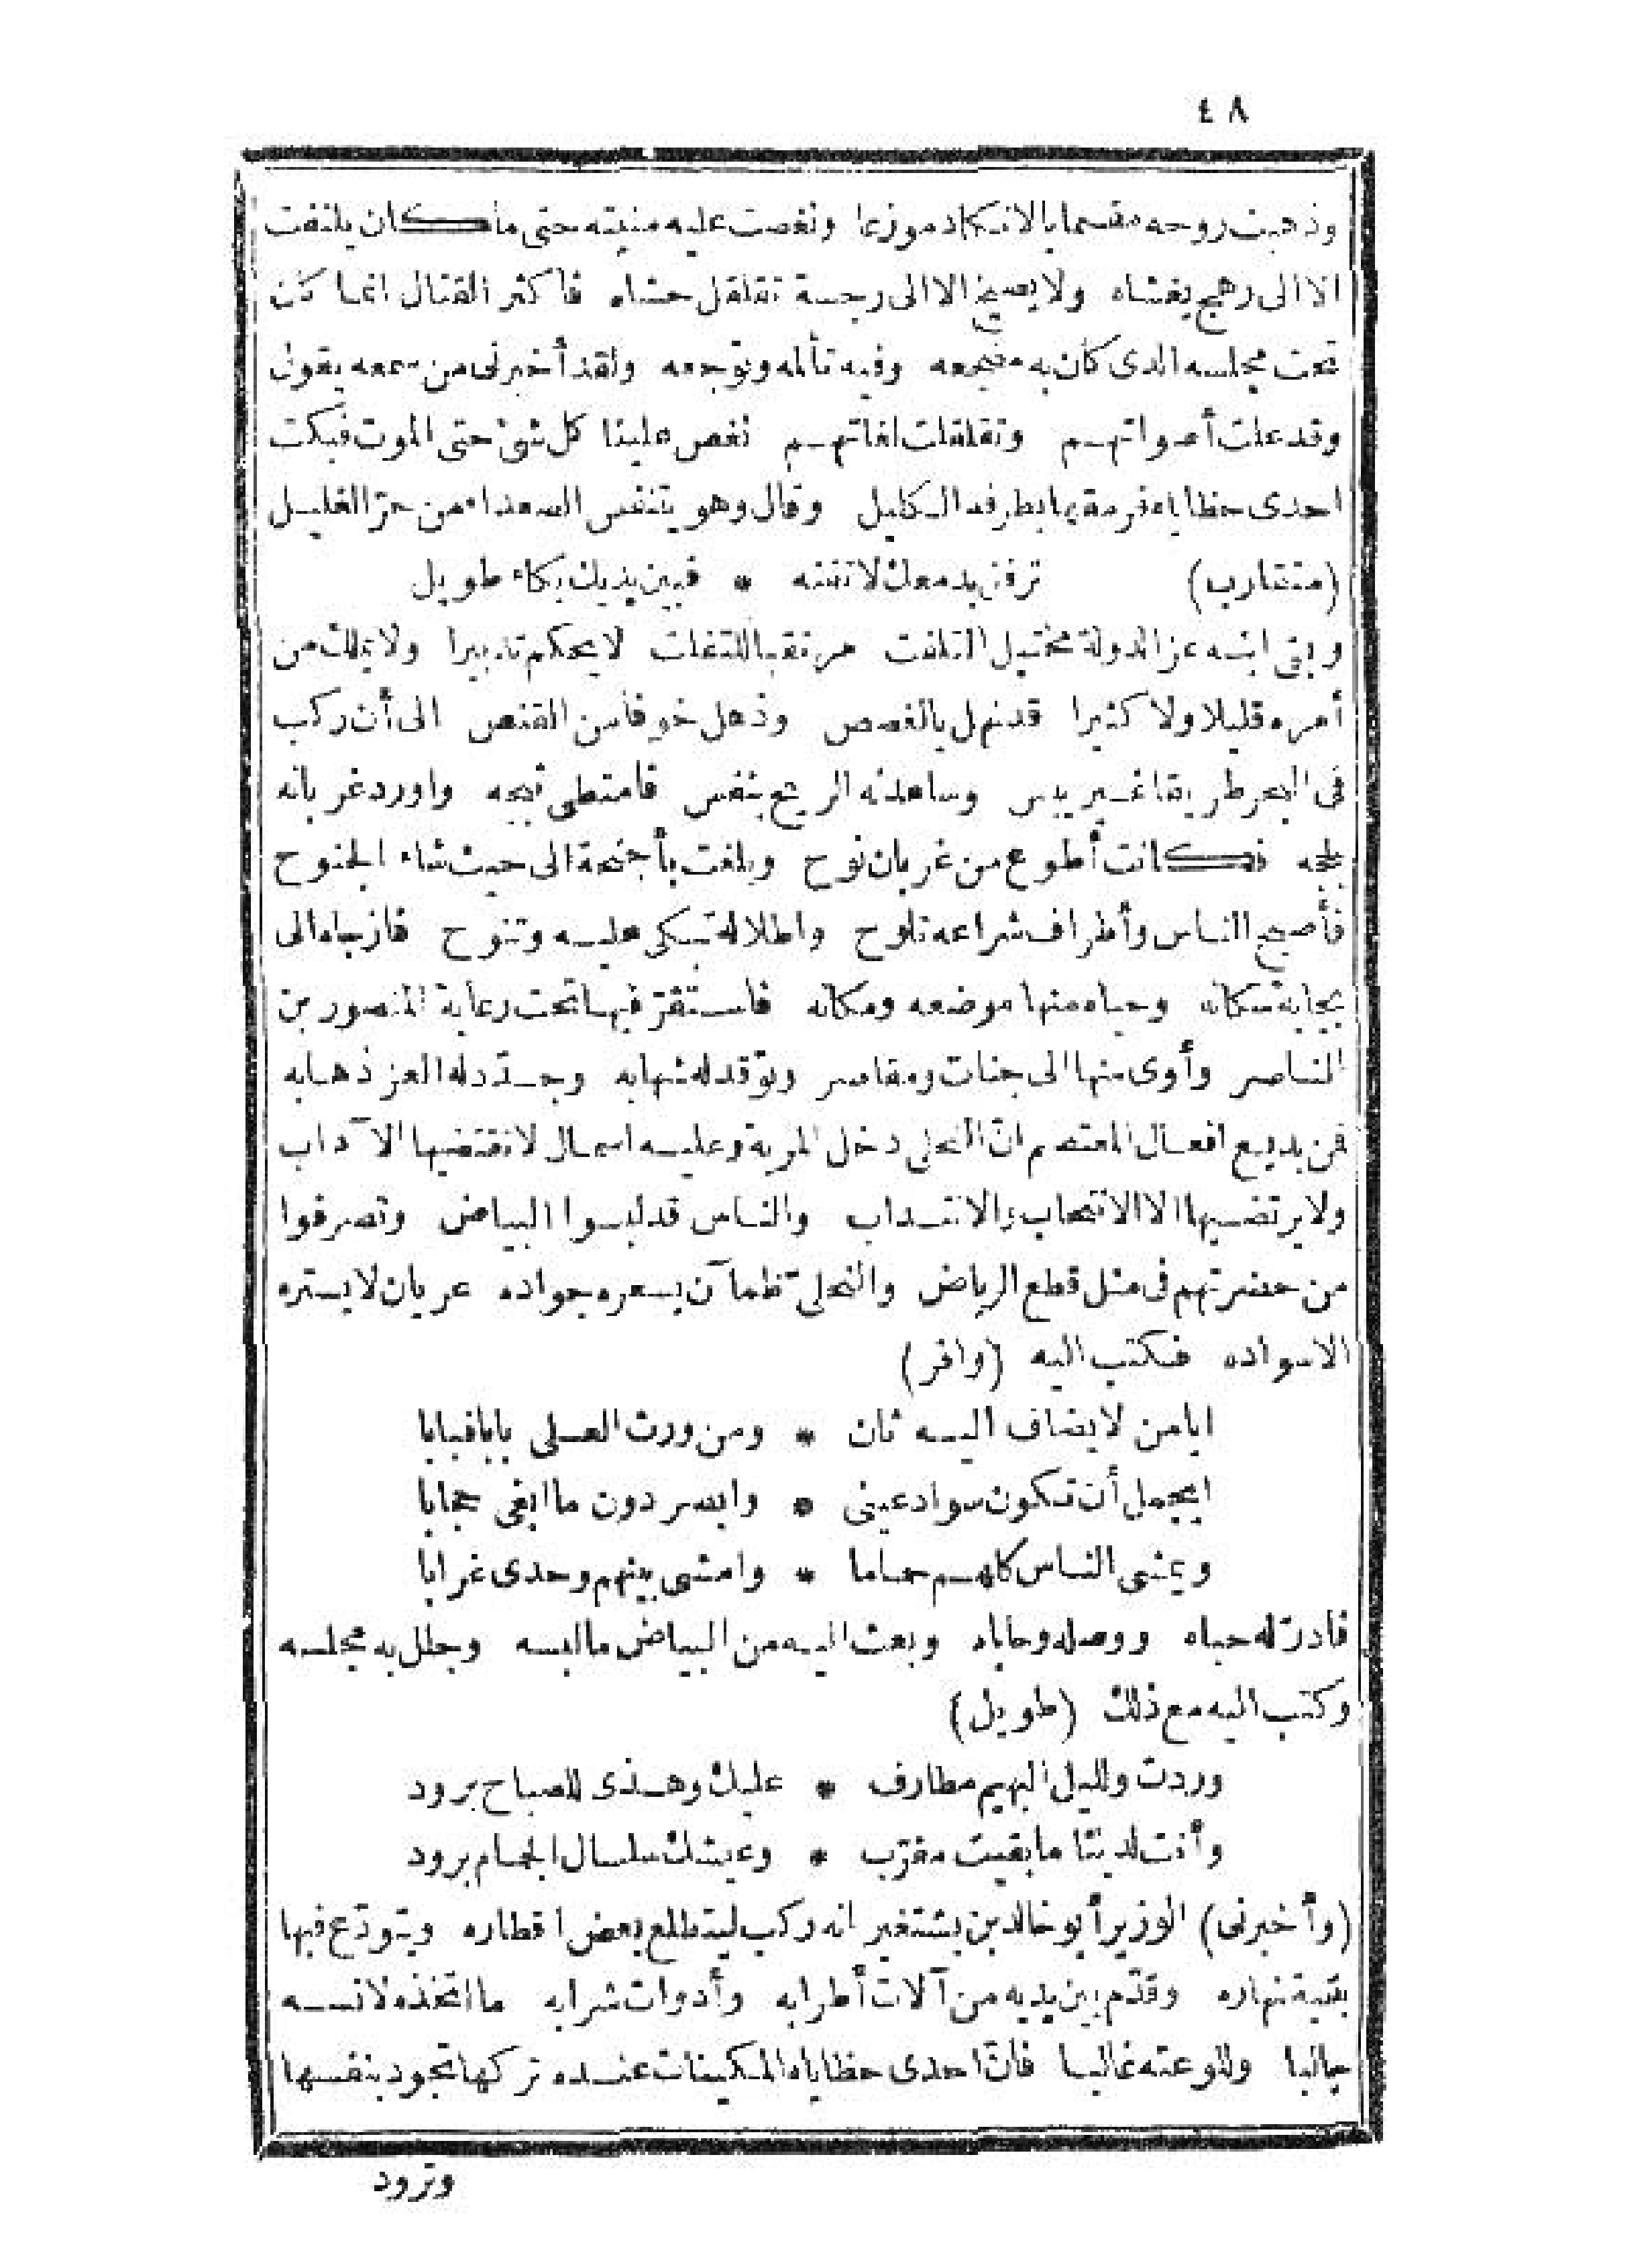 ٤٨
وذهبت روحه مقسما بالانكاد موزعا ونغصت عليه منيته حتى ما كان يلتفت
الا الى رهج يغشاه ولا يصيخ الا الى رجسة تقلقل حشاه فأكثر القتال انما كان
تحت مجلسه الذى كان به مضجعه وفيه تألمه وتوجعه ولقد أخبرنى من سمعه يقول
وقد علت أصواتهم وتقلقلت لغاتهم نغص علينا كل شئ حتى الموت فبكت
احدى حظاياه فرمقها بطرفه الكليل وقال وهو يتنفس الصعداء من حر الغليل
(متقارب) ترفق بدمعك لا تفنه * فبين يديك بكاء طويل
وبقى ابنه عز الدولة مختبل التلفت مرتقبا للتفلت لا يحكم تدبيرا ولا يملك من
أمره قليلا ولا كثيرا قد نهل بالغصص وذهل خوفا من القنص الى أن ركب
فى البحر طريقا غير يبس وساعدته الريح بنفس فامتطى ثبجه واورد غربانه
لججه فكانت أطوع من غربان نوح وبلغت بأجنحة الى حيث شاء الجنوح
فأصبح الناس وأطراف شراعه تلوح واطلاله تبكى عليه وتنوح فازجاه الى
بجاية سكانه وحباه منها موضعه ومكانه فاستقر فيها تحت رعاية المنصور بن
الناصر وأوى منها الى جنات ومقاصر وتوقد له شهابه وجدد له العز ذهابه
فمن بديع افعال المعتصم ان النحلى دخل المرية وعليه اسمال لا تقتضيها الآداب
ولا يرتضيها الا الانتحاب والانتداب والناس قد لبسوا البياض وتصرفوا
من حضرتهم فى مثل قطع الرياض والنحلى ظمآن يسعره جواده عريان لا يستره
الا سواده فكتب اليه (وافر)
ايا من لا يضاف اليه ثان * ومن ورث العلى بابا فبابا
ايجمل أن تكون سواد عينى * وابصر دون ما ابغى حجابا
ويمشى الناس كلهم حماما * وامشى بينهم وحدى غرابا
فادر له حباه ووصله وحاباه وبعث اليه من البياض ما لبسه وجلل به مجلسه
وكتب اليه مع ذلك (طويل)
وردت ولليل البهيم مطارف * عليك وهذى للصباح برود
وأنت لدينا ما بقيت مقرب * وعيشك سلسال الجمام برود
(وأخبرنى) الوزير أبو خالد بن بشتغير انه ركب ليتطلع بعض اقطاره ويتودع فيها
بقية نهاره وقدم بين يديه من آلات أطرابه وأدوات شرابه ما اتخذه لانسه
جالبا وللوعته غالبا فان احدى حظاياه المكينات عنده تركها تجود بنفسها
وترود